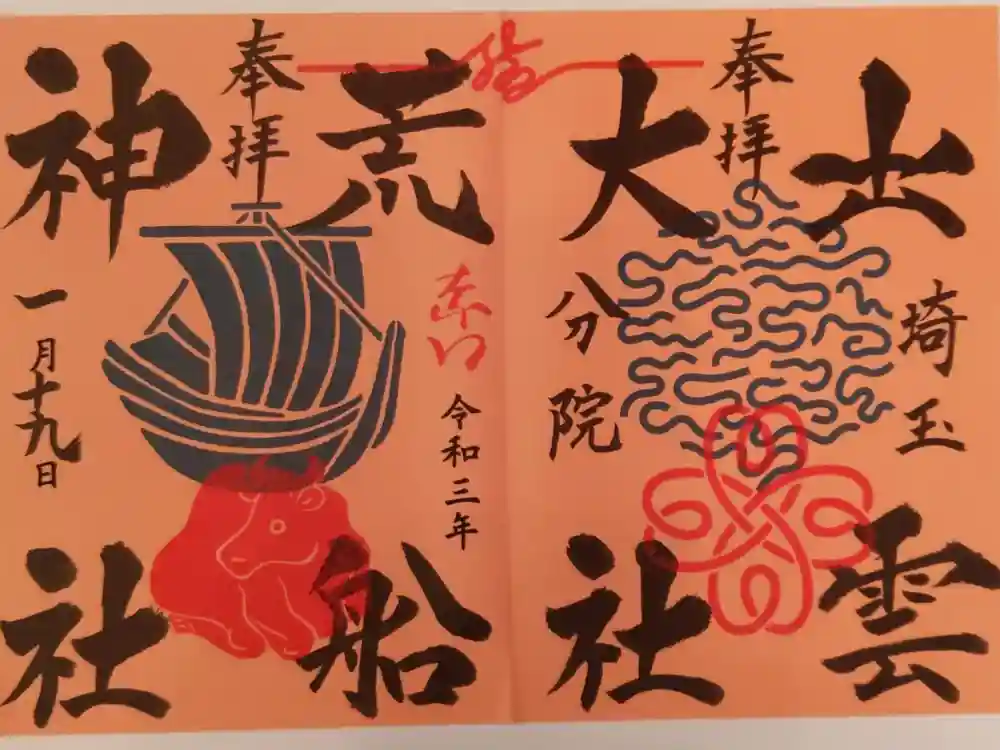 出雲
埼玉
奉拝
大社
分院
荒船
令和三年
奉拝
神社
一月十九日